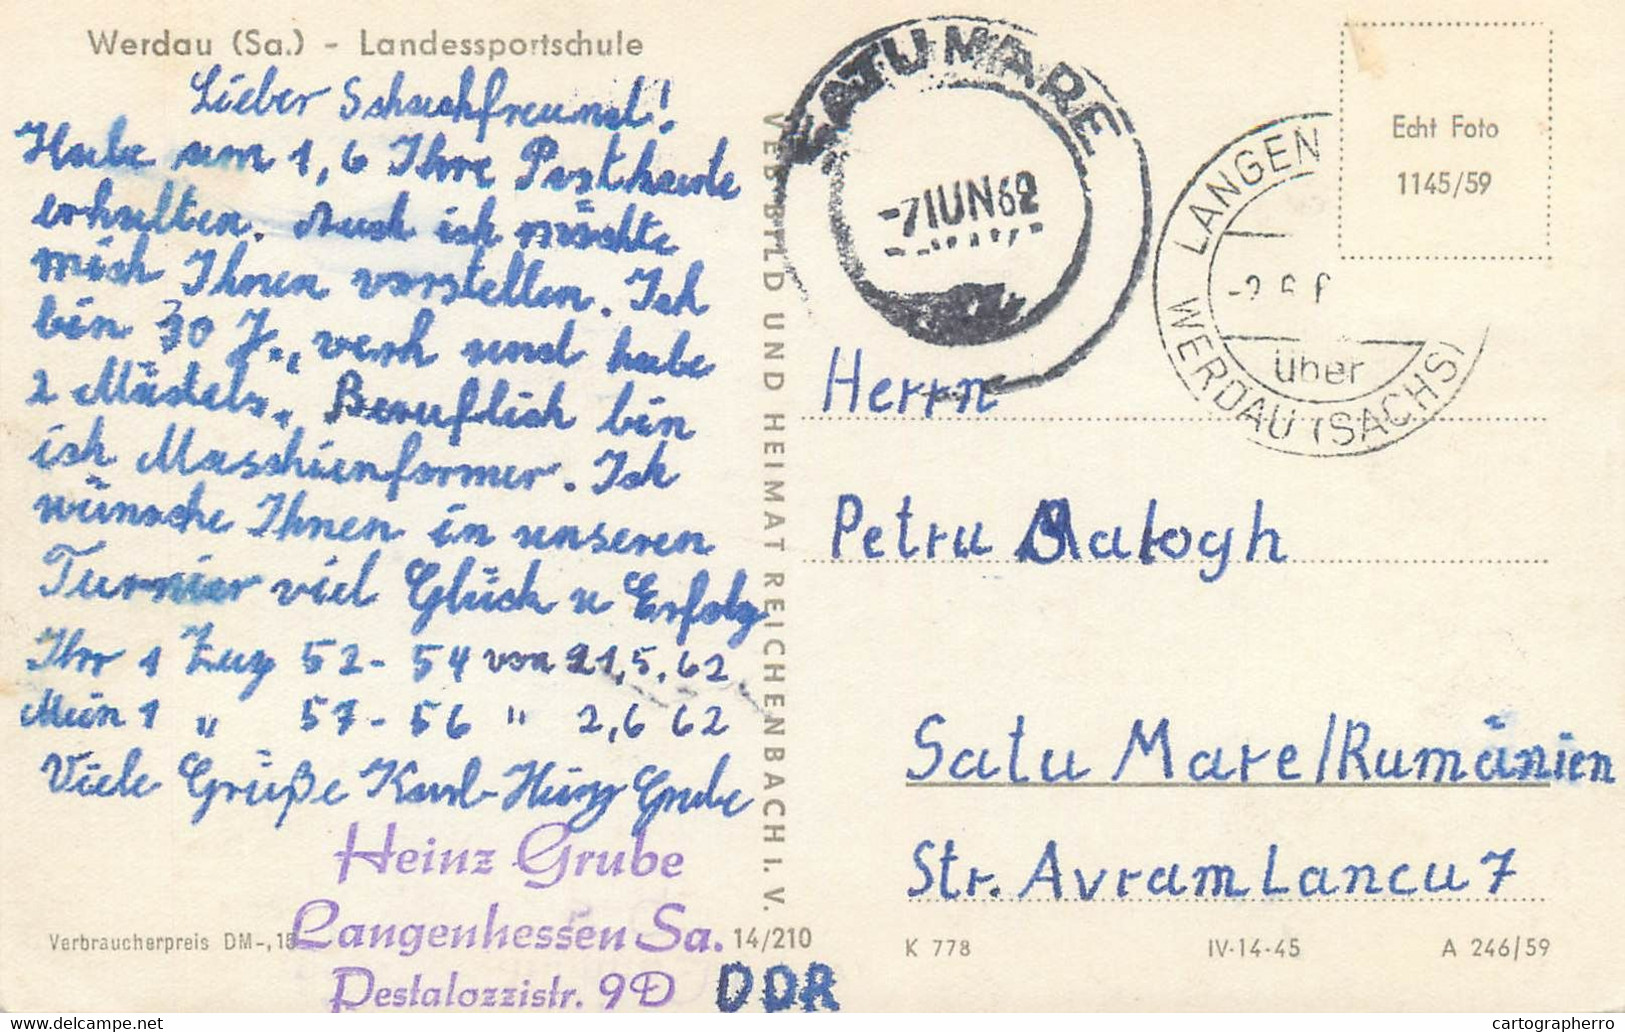 Werdau (Sa.) - Landessportschule
Lieber Schachfreund!
Habe am 1,6 Ihre Postkarte
erhalten. Auch ich möchte
mich Ihnen vorstellen. Ich
bin 30 J., verh und habe
2 Mädels. Beruflich bin
ich Maschienformer. Ich
wünsche Ihnen in unseren
Turnier viel Glück u Erfolg
Ihr 1 Zug 52-54 von 21,5.62
Mein 1 " 57-56 " 2,6 62
Viele Grüße Karl-Heinz Grube
Heinz Grube
Langenhessen Sa.
Pestalozzistr. 9D DDR
Verbraucherpreis DM-,15
14/210
VEB BILD UND HEIMAT REICHENBACH I. V.
SATU MARE
-7 IUN 62
LANGEN
-2.6.6
über
WERDAU (SACHS)
Echt Foto
1145/59
Herrn
Petru Balogh
Satu Mare/Rumänien
Str. Avram Lancu 7
K 778
IV-14-45
A 246/59
www.delcampe.net
cartographerro